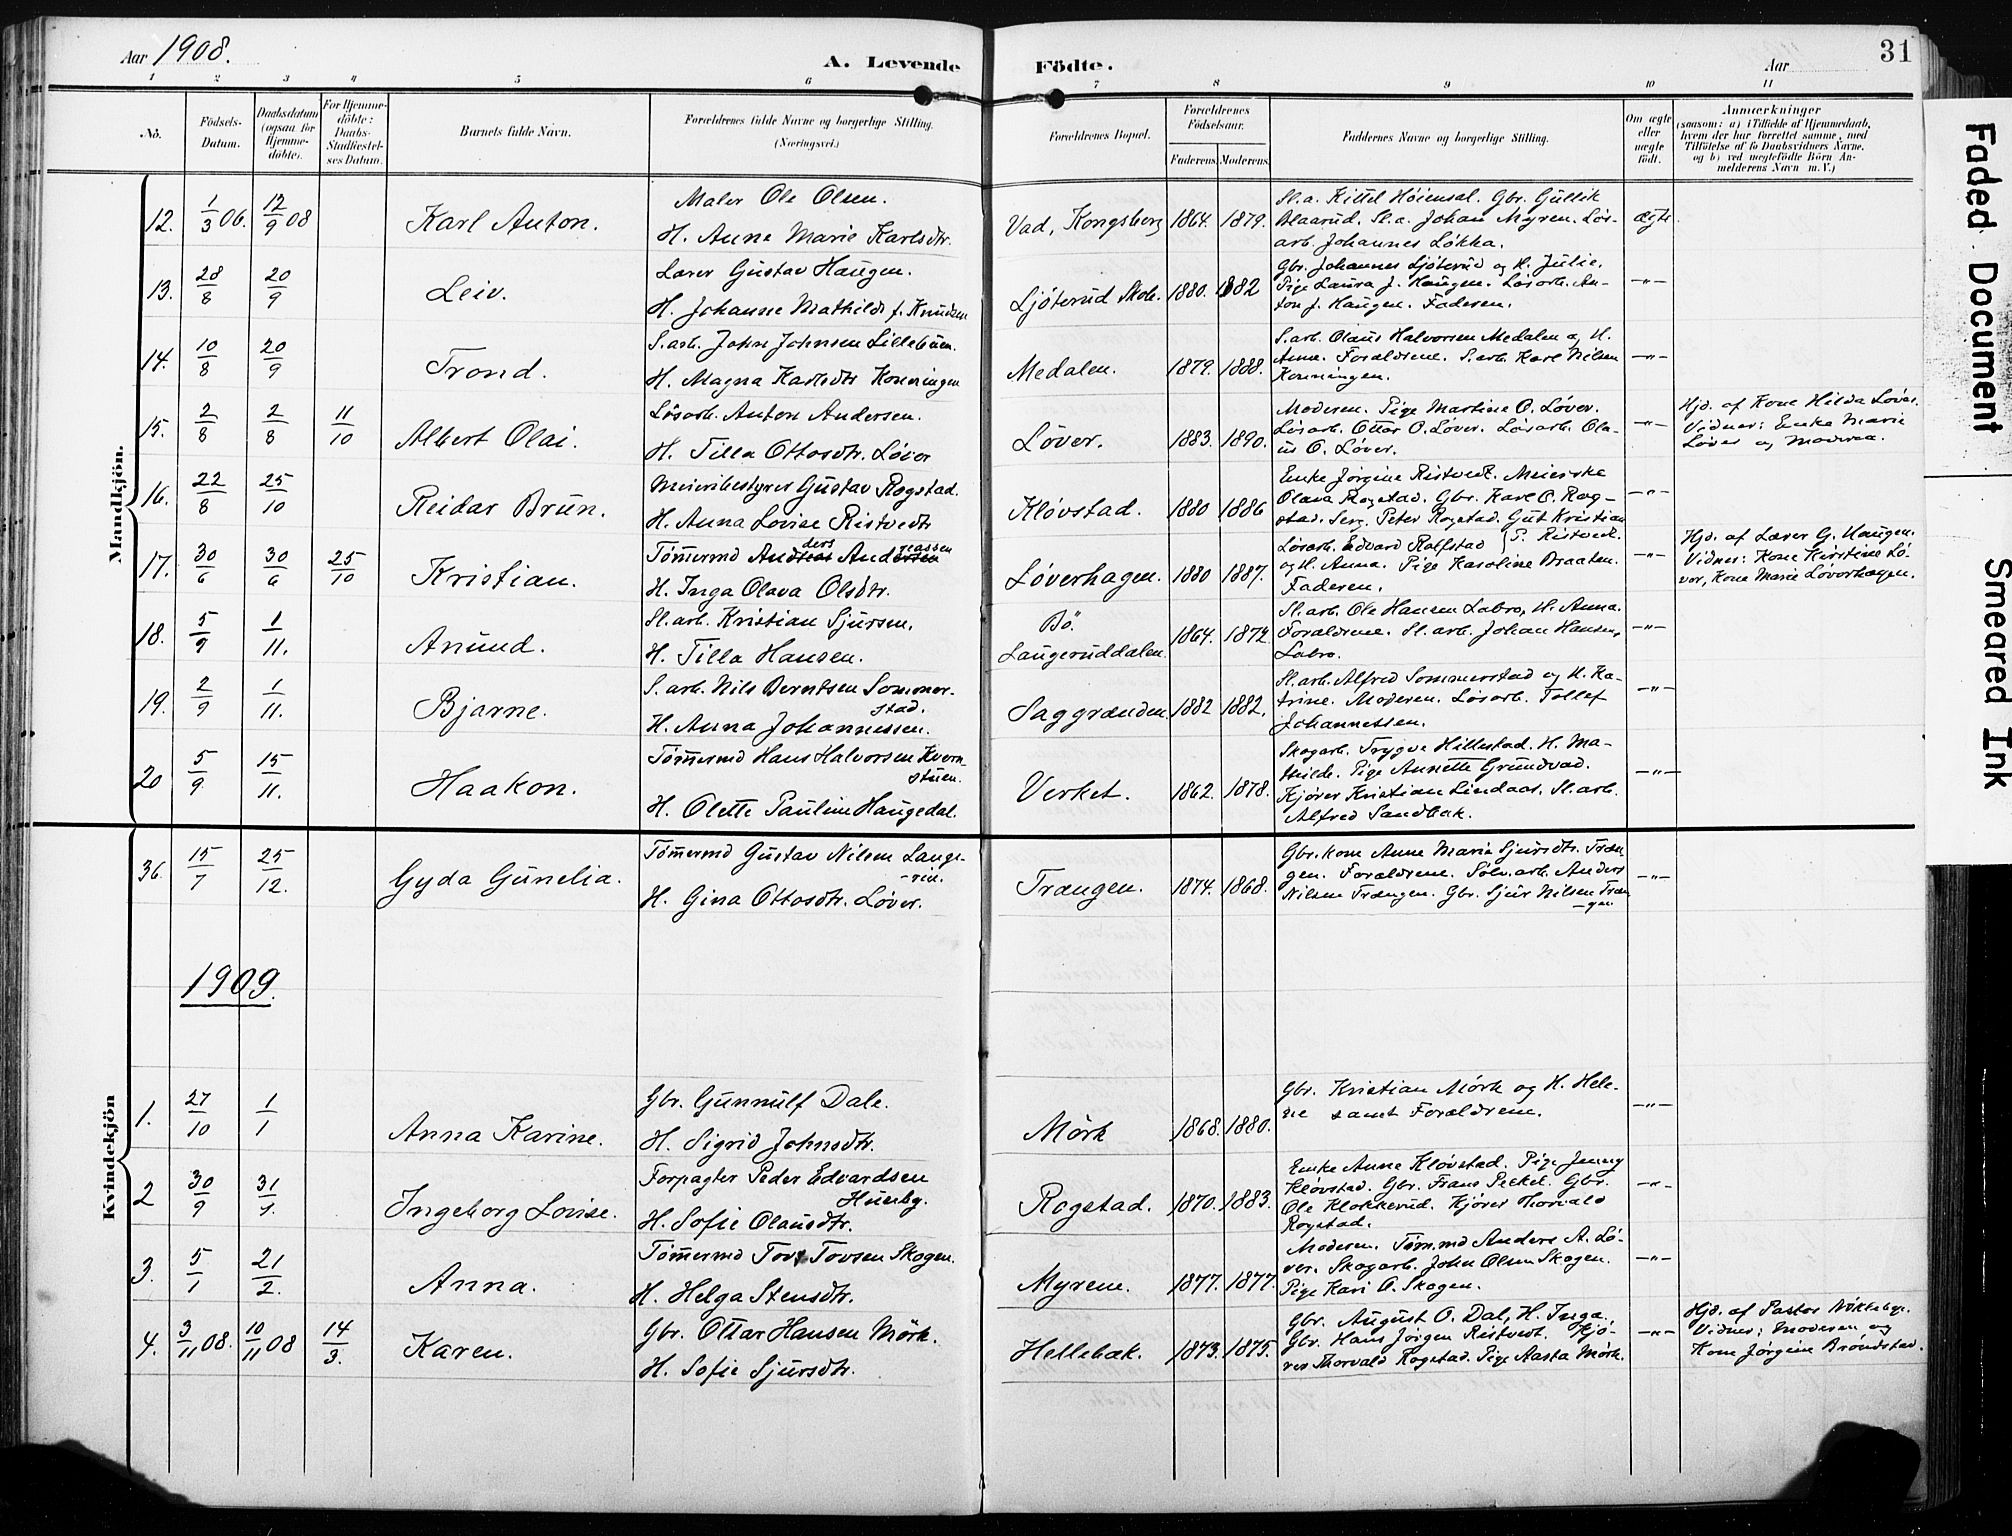 Aar 1908.
A. Levende Födte.
Aar
31
1 2 3 4 5 6 7 8 9 10 11
No.
Födsels-
Datum.
Daabsdatum
(ogsaa for
Hjemme-
döbte).
For Hjemme-
döbte:
Daabs-
Stadfæstel-
ses Datum.
Barnets fulde Navn.
Forældrenes fulde Navne og borgerlige Stilling.
(Næringsvei.)
Forældrenes Bopæl.
Forældrenes
Födselsaar.
Faderens. Moderens.
Faddernes Navne og borgerlige Stilling.
Om ægte
eller
uægte
födt.
Anmærkninger
(saasom: a) i Tilfælde af Hjemmedaab,
hvem der har forrettet samme, med
Tilföielse af to Daabsvidners Navne,
og b) ved uægtefödte Börn An-
melderens Navn m. V.)
Mandkjön.
12. 1/3 06. 12/9 08 Karl Anton.
Maler Ole Olsen.
H. Anne Marie Karlsdtr.
Vad, Kongsberg 1864. 1879.
Sl.a. Kittil Høiensal. Gbr. Gullik
Blaarud. Sl.a. Johan Myren. Løs-
arb. Johannes Løkka.
ægte
13. 28/8 20/9 Leiv.
Lærer Gustav Haugen.
H. Johanne Mathilde f. Knudsen
Ljöterud Skole. 1880. 1882
Gbr. Johannes Ljöterud og H. Julie.
Pige Laura J. Haugen. Løsarb. An-
ton J. Haugen. Faderen.
—"—
14. 10/8 20/9 Trond.
S.arb. John Johnsen Lillebuen.
H. Magna Karlsdtr Konningen
Medalen. 1879. 1888.
S.arb. Olaus Halvorsen Medalen og H.
Anne. Forældrene. S.arb. Karl Nilsen
Konningen.
—"—
15. 2/8 2/8 11/10 Albert Olai.
Løsarb. Anton Andersen.
H. Tilla Ottosdtr. Løver
Løver. 1883. 1890.
Moderen. Pige Martine O. Løver.
Løsarb. Ottar O. Løver. Løsarb. Ola-
us O. Løver.
—"—
Hjd. af Kone Hilda Løver.
Vidner: Enke Marie
Løver og Moderen.
16. 22/8 25/10 Reidar Brun.
Meieribestyrer Gustav Rogstad.
H. Anna Lovise Ristvedt
Kløvstad. 1880 1886
Enke Jørgine Ristvedt. Meierske
Olava Rogstad. Gbr. Karl O. Rog-
stad. Serg. Peter Rogstad. Gut Kristian
P. Ristvedt.
—"—
17. 30/6 30/6 25/10 Kristian.
Tømermd Anders Andreassen
H. Inga Olava Olsdtr.
Løverhagen. 1880 1887.
Løsarb. Edvard Rolfstad
og H. Anna. Pige Karoline Braaten.
Faderen.
—"—
Hjd. af Lærer G. Haugen.
Vidner: Kone Kirstine Lø-
ver, Kone Marie Løverhagen.
18. 5/9 1/11. Anund.
Sl.arb. Kristian Sjursen.
H. Tilla Hansen.
Bö.
Laugeruddalen. 1864. 1872
Sl.arb. Ole Hansen Labro, H. Anna.
Forældrene. Sl.arb. Johan Hansen,
Labro.
—"—
19. 2/9 1/11. Bjarne.
S.arb. Nils Berntsen Sommer-
stad.
H. Anna Johannessen.
Saggrænden 1882 1882.
Sl.arb. Alfred Sommerstad og H. Ka-
trine. Moderen. Løsarb. Tollef
Johannessen.
—"—
20 5/9 15/11. Haakon.
Tømermd Hans Halvorsen Kvern-
stuen.
H. Olette Pauline Haugedal.
Verket. 1862. 1878.
Skogarb. Trygve Hillestad. H. Ma-
thilde. Pige Annette Grundvad.
Kjører Kristian Lindaas. Sl.arb.
Alfred Sandbak.
—"—
36. 15/7 25/12. Gyda Gunelia.
Tømermd Gustav Nilsen Lange-
H. Gina Ottosdtr. Løver.
Trængen. 1874. 1868.
Gbr.kone Anne Marie Sjursdtr. Træn-
gen. Forældrene. Sølv.arb. Anders
Nilsen Trængen. Gbr. Sjur Nilsen Træn-
gen
—"—
1909.
Kvindekjön
1. 27/10 1/1 Anna Karine.
Gbr. Gunnulf Dale.
H. Sigrid Johnsdtr.
Mørk 1868. 1880.
Gbr. Kristian Mørk og H. Hele-
ne samt Forældrene.
—"—
2 30/9 31/1. Ingeborg Lovise.
Forpagter Peder Edvardsen
Huseby.
H. Sofie Olausdtr.
Rogstad. 1870. 1883.
Enke Anne Kløvstad. Pige Jenny
Kløvstad. Gbr. Frans Peckel. Gbr.
Ole Klokkerud. Kjører Thorvald
Rogstad.
—"—
3. 5/1 21/2. Anna.
Tømermd Tov Tovsen Skogen.
H. Helga Stensdtr.
Myrene. 1877. 1877.
Moderen. Tøm.md Anders A. Lø-
ver. Skogarb. John Olsen Skogen.
Pige Kari O. Skogen.
—"—
4. 3/11 08. 10/11 08 14/3. Karen.
Gbr. Ottar Hansen Mörk.
H. Sofie Sjursdtr.
Hellebæk. 1873. 1875.
Gbr. August O. Dal, H. Inga.
Gbr. Hans Jørgen Ristvedt. Kjø-
rer Thorvald Rogstad. Pige Aasta Mørk.
—"—
Hjd. af Pastor Nøkleby.
Vidner: Moderen og
Kone Jørgine Brøndstad.
Faded Document
Smeared Ink